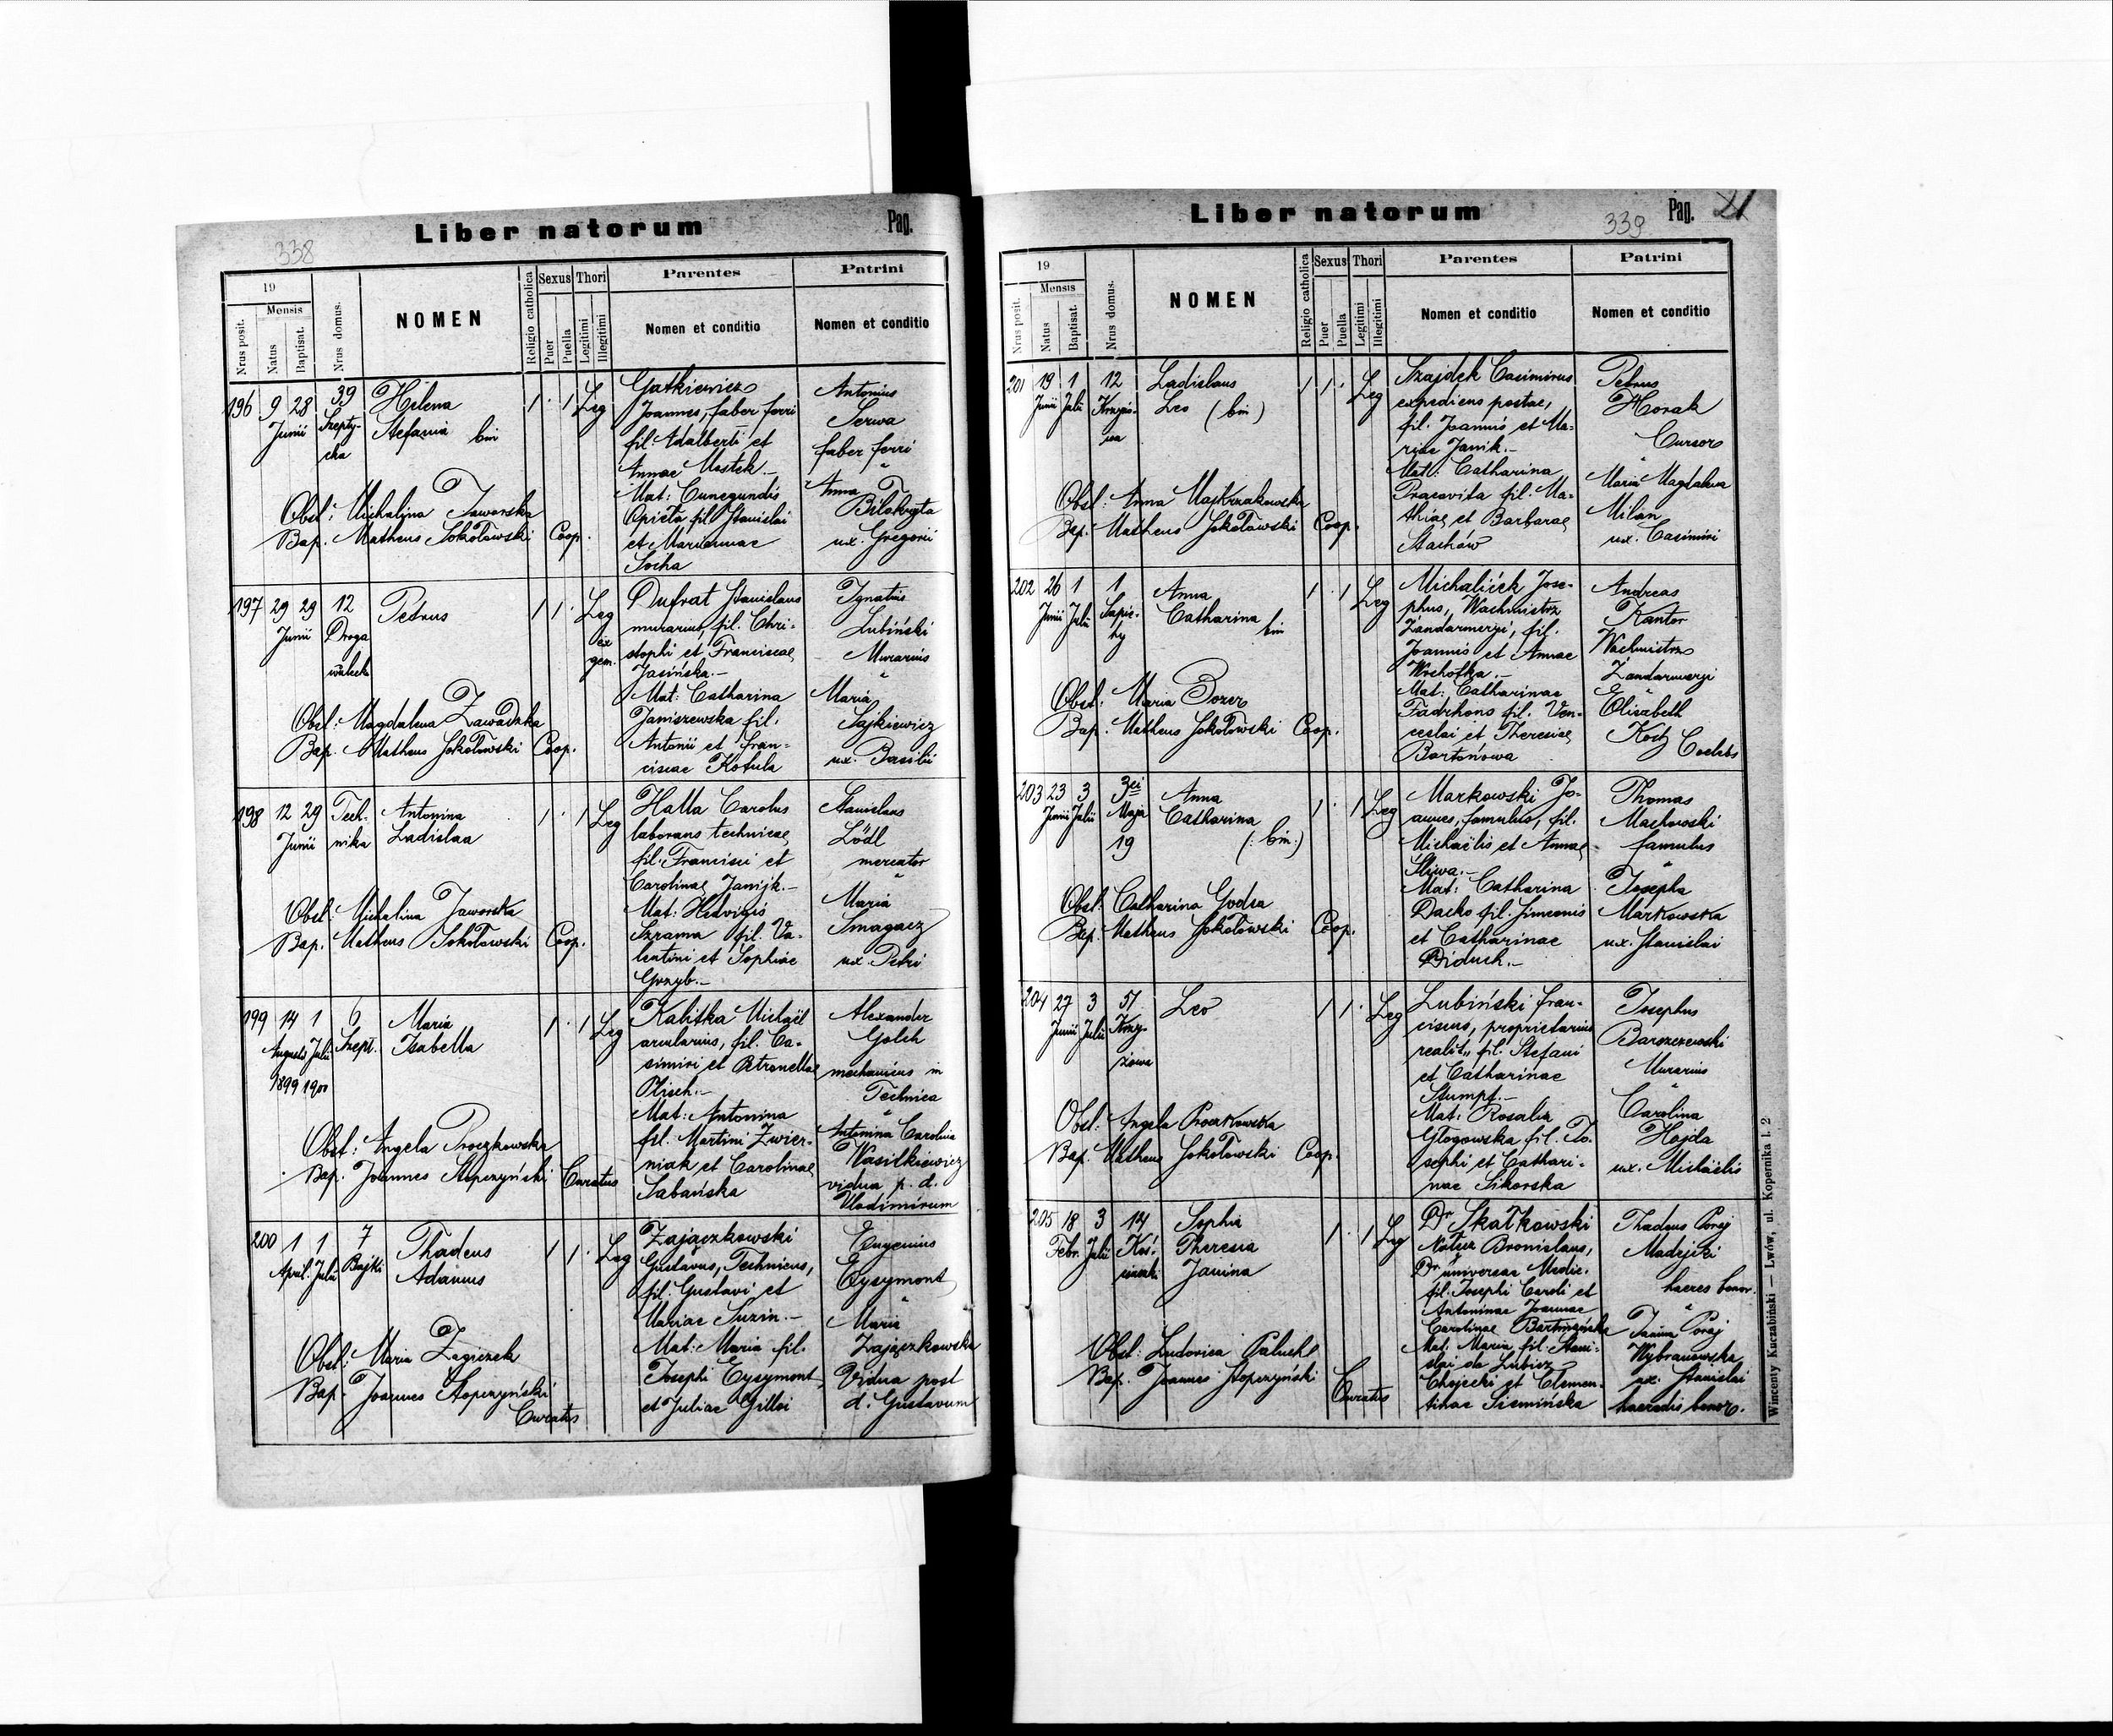 Liber natorum Pag.
338
19
Mensis
Nrus posit.
Natus
Baptisat.
Nrus domus.
NOMEN
Religio catholica
Sexus
Puer
Puella
Thori
Legitimi
Illegitimi
Parentes
Nomen et conditio
Patrini
Nomen et conditio
196 9 28 39 Hilena 1 1 Leg
Junii Szepty-
cka
Stefania bin
Obst: Michalina Jaworska
Bap. Matheus Sokołowski Coop.
Gatkiewicz
Joannes, faber ferri
fil. Adalberti et
Annae Mostek.-
Mat: Cunegundis
Opieła fil. Stanislai
et Mariannae
Socha
Antonius
Serwa
faber ferri
"
Anna
ux. Gregorii
197 29 29 12 Petrus 1 1 Leg
Junii Droga
ex
gem.
Obst: Magdalena Zawadzka
Bap. Matheus Sokołowski Coop.
Dufrat Stanislaus
murarius, fil. Chri-
stophi et Franciscae
Jasińska.-
Mat: Catharina
Janiszewska fil.
Antonii et Fran-
ciscae Kotula
Ignatius
Lubiński
Murarius
"
Maria
Sajkiewicz
ux. Basilii
198 12 29 Tech- Antonina 1 1 Leg
Junii nika Ladislaa
Obst: Michalina Jaworska
Bap. Matheus Sokołowski Coop.
Halla Carolus
laborans technicae
fil. Francisci et
Carolinae Janijk.-
Mat: Hedvigis
Szrama fil. Va-
lentini et Sophiae
Grzyb.-
Stanislaus
Lödl
mercator
"
Maria
Smagacz
ux. Petri
199 14 1 6 Maria 1 1 Leg
Augusti Julii Szept. Isabella
1899 1900
Obst: Angela Proczkowska
Bap. Joannes Stopczyński Curatus
Kabitka Michaël
arcularius, fil. Ca-
simiri et Petronellae
Olisch.-
Mat: Antonina
fil. Martini Zwier-
niak et Carolinae
Sabańska
Alexander
Golch
mechanicus in
Technica
"
Antonina Carolina
Wasilkiewicz
vidua p. d.
Vladimirum
200 1 1 7 Thadeus 1 1 Leg
April. Julii Bajki Adamus
Obst: Maria Zagiczek
Bap. Joannes Stopczyński
Curatus
Zajączkowski
Gustavus, Technicus,
fil. Gustavi et
Mariae Suzin.-
Mat: Maria fil.
Josephi Eysymont
et Juliae Gilloi
Eugenius
Eysymont
"
Maria
Zajączkowska
Vidua post
d. Gustavum
Liber natorum Pag. 21
339
19
Mensis
Nrus posit.
Natus
Baptisat.
Nrus domus.
NOMEN
Religio catholica
Sexus
Puer
Puella
Thori
Legitimi
Illegitimi
Parentes
Nomen et conditio
Patrini
Nomen et conditio
201 19 1 12 Ladislaus 1 1 Leg
Junii Julii Leo (bin)
Obst: Anna Majkrzakowska
Bap. Matheus Sokołowski Coop.
Szajdek Casimirus
expediens postae,
fil. Joannis et Ma-
riae Janik.-
Mat: Catharina
Pracovita fil. Ma-
thiae et Barbarae
Stachów
Petrus
Horak
Cursor
"
Maria Magdalena
Milan
ux. Casimiri
202 26 1 1 Anna 1 1 Leg
Junii Julii Sapie-
hy
Catharina bin
Obst: Maria Borer
Bap. Matheus Sokołowski Coop.
Michaliček Jose-
phus, Wachmistrz
Żandarmeryi, fil.
Joannis et Annae
Wrchotka.-
Mat: Catharinae
Fadrhons fil. Ven-
ceslai et Theresiae
Bartoňowa
Andreas
Kantor
Wachmistrz
Żandarmeryi
"
Elisabeth
Kotz Coelebs
203 23 3 3ei Anna 1 1 Leg
Junii Julii Maja Catharina
19 (: bin:)
Obst: Catharina Godra
Bap. Matheus Sokołowski Coop.
Markowski Jo-
annes, famulus, fil.
Michaëlis et Annae
Śliwa.-
Mat: Catharina
Dacko fil. Simeonis
et Catharinae
Diduch.-
Thomas
Machowski
famulus
"
Josepha
Markowska
ux. Stanislai
204 27 3 51 Leo 1 1 Leg
Junii Julii Krzy-
żowa
Obst: Angela Proczkowska
Bap. Matheus Sokołowski Coop.
Lubiński Fran-
ciscus, proprietarius
realit., fil. Stefani
et Catharinae
Stumpf.-
Mat: Rosalia
Głogowska fil. Jo-
sephi et Cathari-
nae Sikorska
Josephus
Barszczewski
Murarius
"
Carolina
Hajda
ux. Michaëlis
205 18 3 14 Sophia 1 1 Leg
Febr. Julii Theresia
Janina
Obst: Ludovica Paluchl
Bap. Joannes Stopczyński
Curatus
Dr Skałkowski
Nałęcz Bronislaus,
Dr universae Medic.
fil. Josephi Caroli et
Antoninae Joannae
Carolinae Bartmańska
Mat: Maria fil. Stani-
slai de Lubicz
Chojecki et Clemen-
tinae Siemińska
Thadeus Poraj
Madejski
haeres bonor.
"
Janina Poraj
Wybranowska
ux. Stanislai
haeredis bonor.
Wincenty Kuczabiński — Lwów, ul. Kopernika l. 2